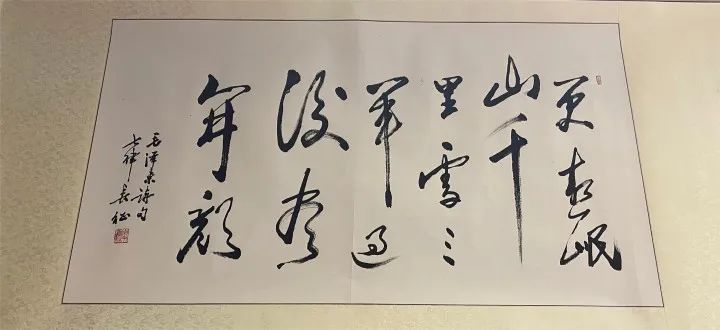 更喜岷
山千
里雪三
军过
後尽
開颜
毛泽东诗句
七律 长征